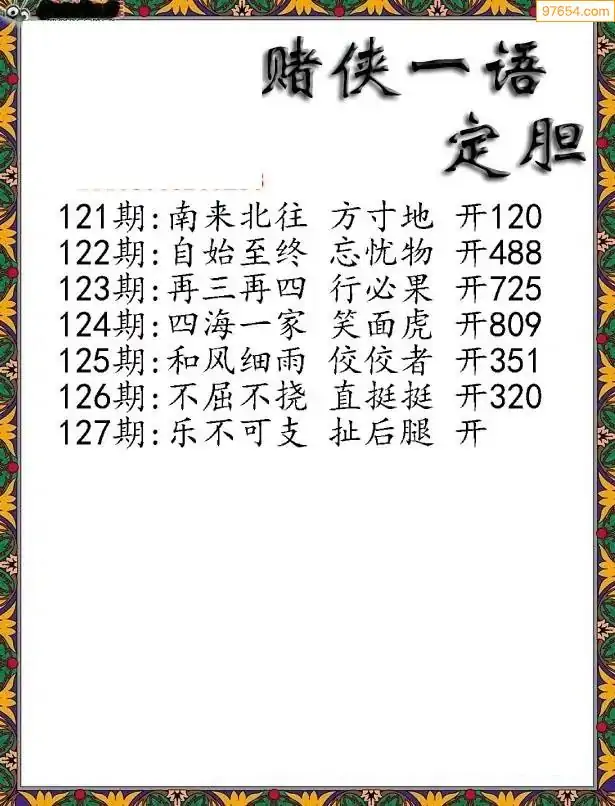 97654.com
赌侠一语
定胆
121期:南来北往 方寸地 开120
122期:自始至终 忘忧物 开488
123期:再三再四 行必果 开725
124期:四海一家 笑面虎 开809
125期:和风细雨 佼佼者 开351
126期:不屈不挠 直挺挺 开320
127期:乐不可支 扯后腿 开